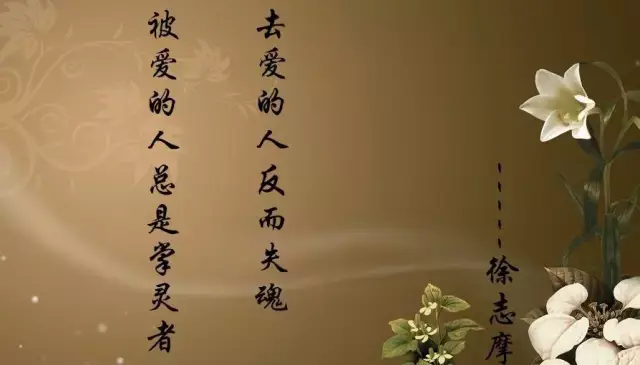 被爱的人总是掌灵者
去爱的人反而失魂
-----徐志摩